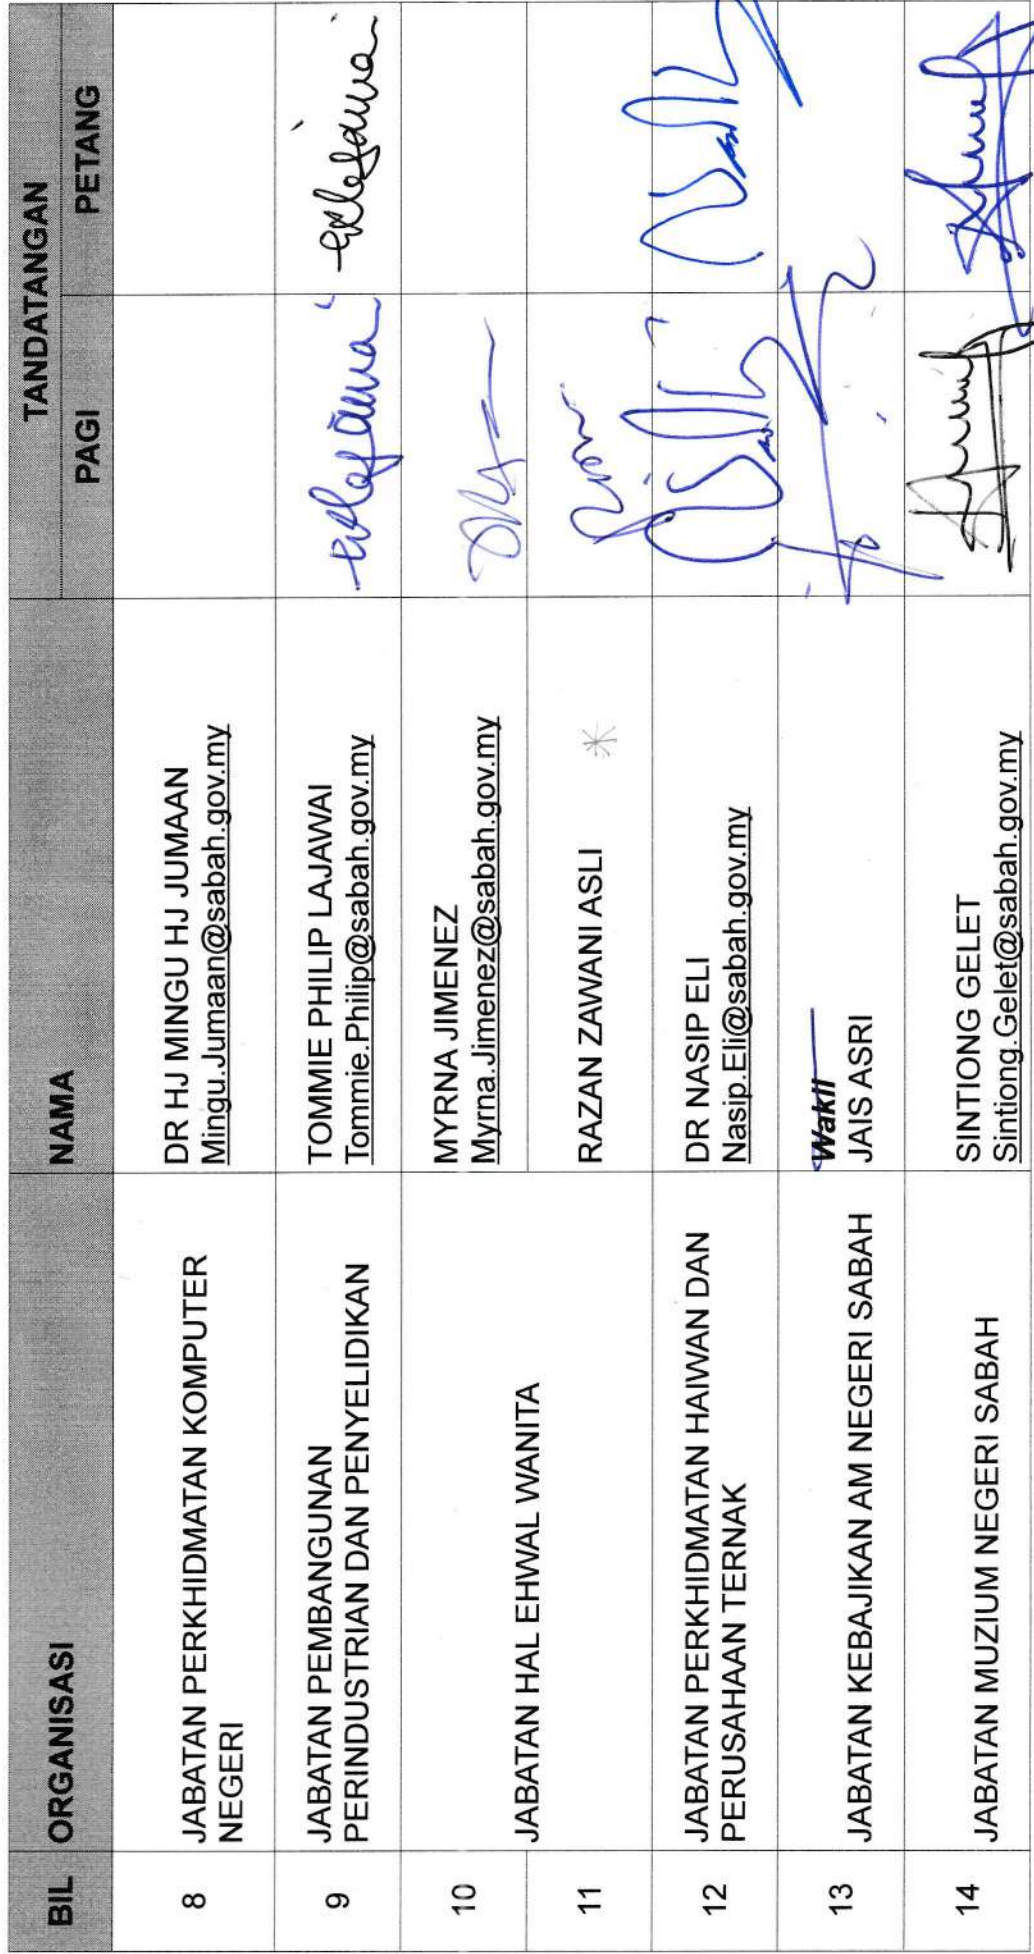 BIL ORGANISASI NAMA TANDATANGAN
PAGI PETANG
8 JABATAN PERKHIDMATAN KOMPUTER
NEGERI
DR HJ MINGU HJ JUMAAN
Mingu.Jumaan@sabah.gov.my
9 JABATAN PEMBANGUNAN
PERINDUSTRIAN DAN PENYELIDIKAN
TOMMIE PHILIP LAJAWAI
Tommie.Philip@sabah.gov.my
10 JABATAN HAL EHWAL WANITA
MYRNA JIMENEZ
Myrna.Jimenez@sabah.gov.my
11 RAZAN ZAWANI ASLI
12 JABATAN PERKHIDMATAN HAIWAN DAN
PERUSAHAAN TERNAK
DR NASIP ELI
Nasip.Eli@sabah.gov.my
13 JABATAN KEBAJIKAN AM NEGERI SABAH
Wakil
JAIS ASRI
14 JABATAN MUZIUM NEGERI SABAH
SINTIONG GELET
Sintiong.Gelet@sabah.gov.my